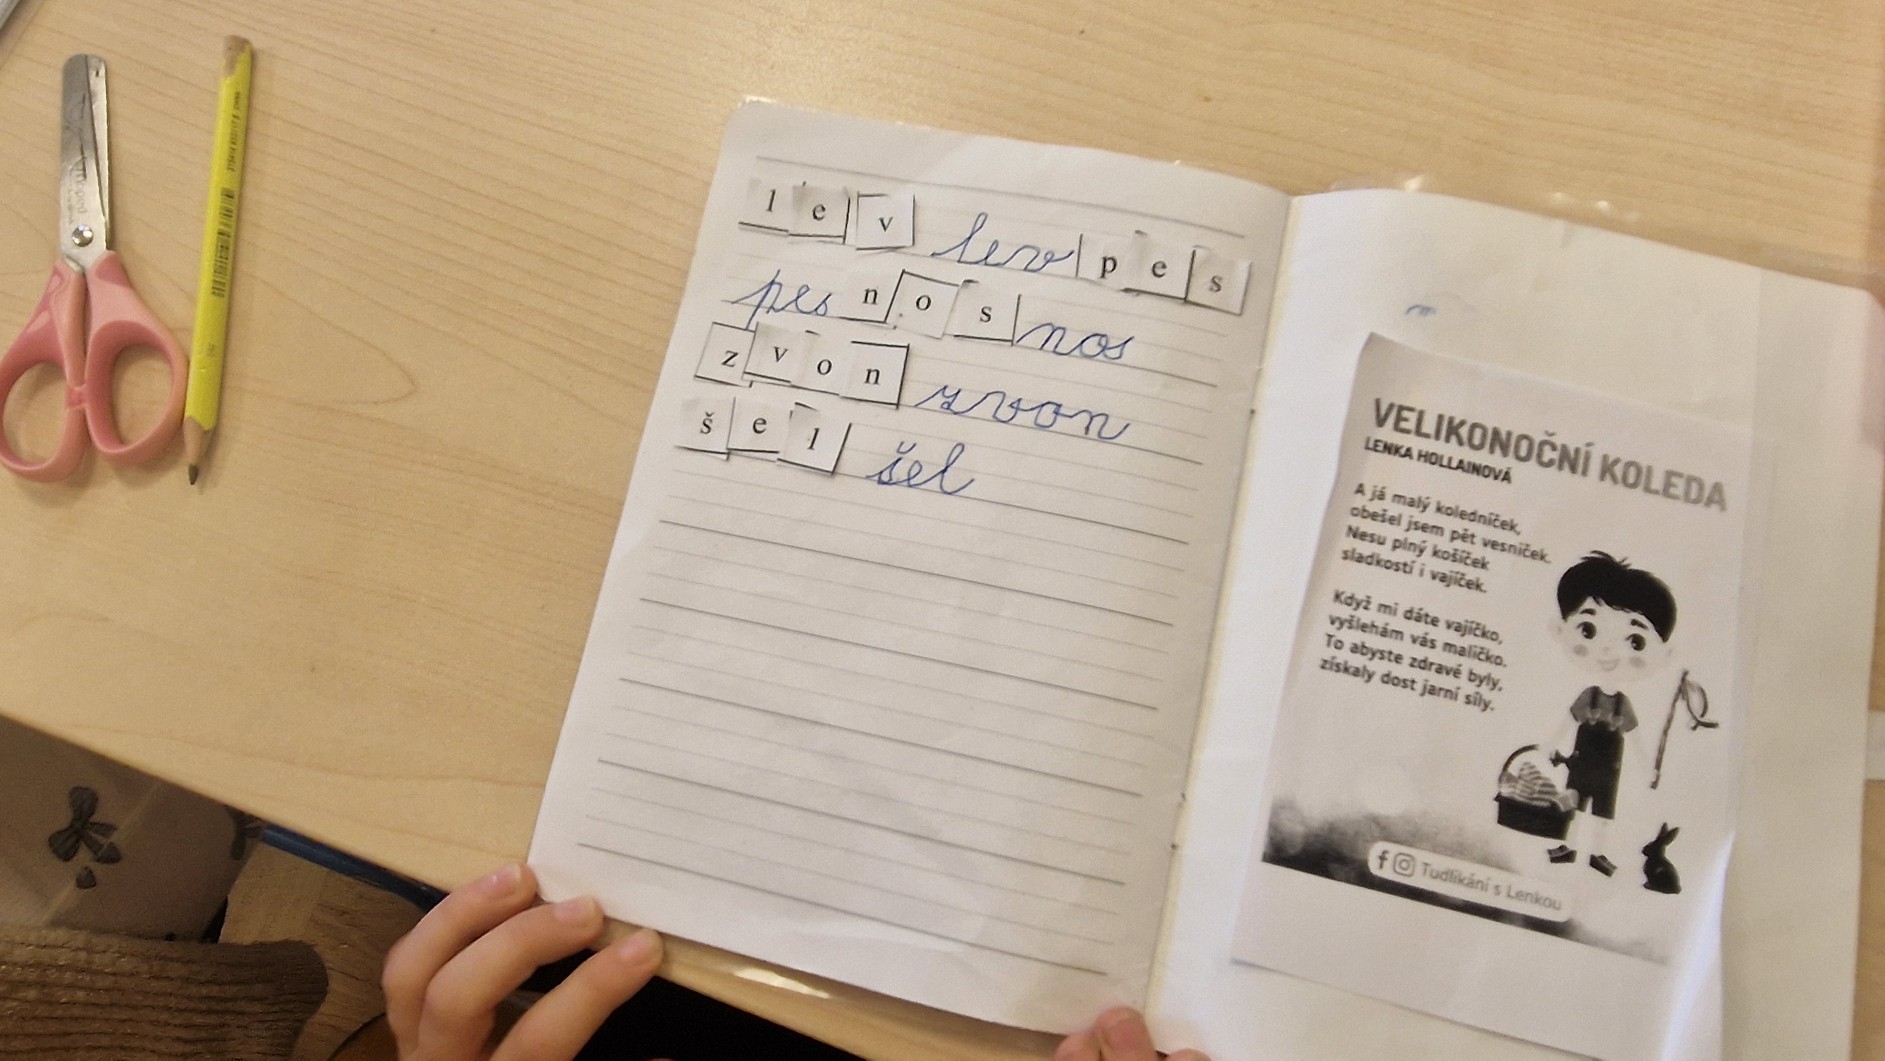 l e v lev p e s
pes n o s nos
z v o n zvon
š e l šel
VELIKONOČNÍ KOLEDA
LENKA HOLLAINOVÁ
A já malý koledníček,
obešel jsem pět vesniček.
Nesu plný košíček
sladkostí i vajíček.
Když mi dáte vajíčko,
vyšlehám vás maličko.
To abyste zdravé byly,
získaly dost jarní síly.
f Tudlikání s Lenkou